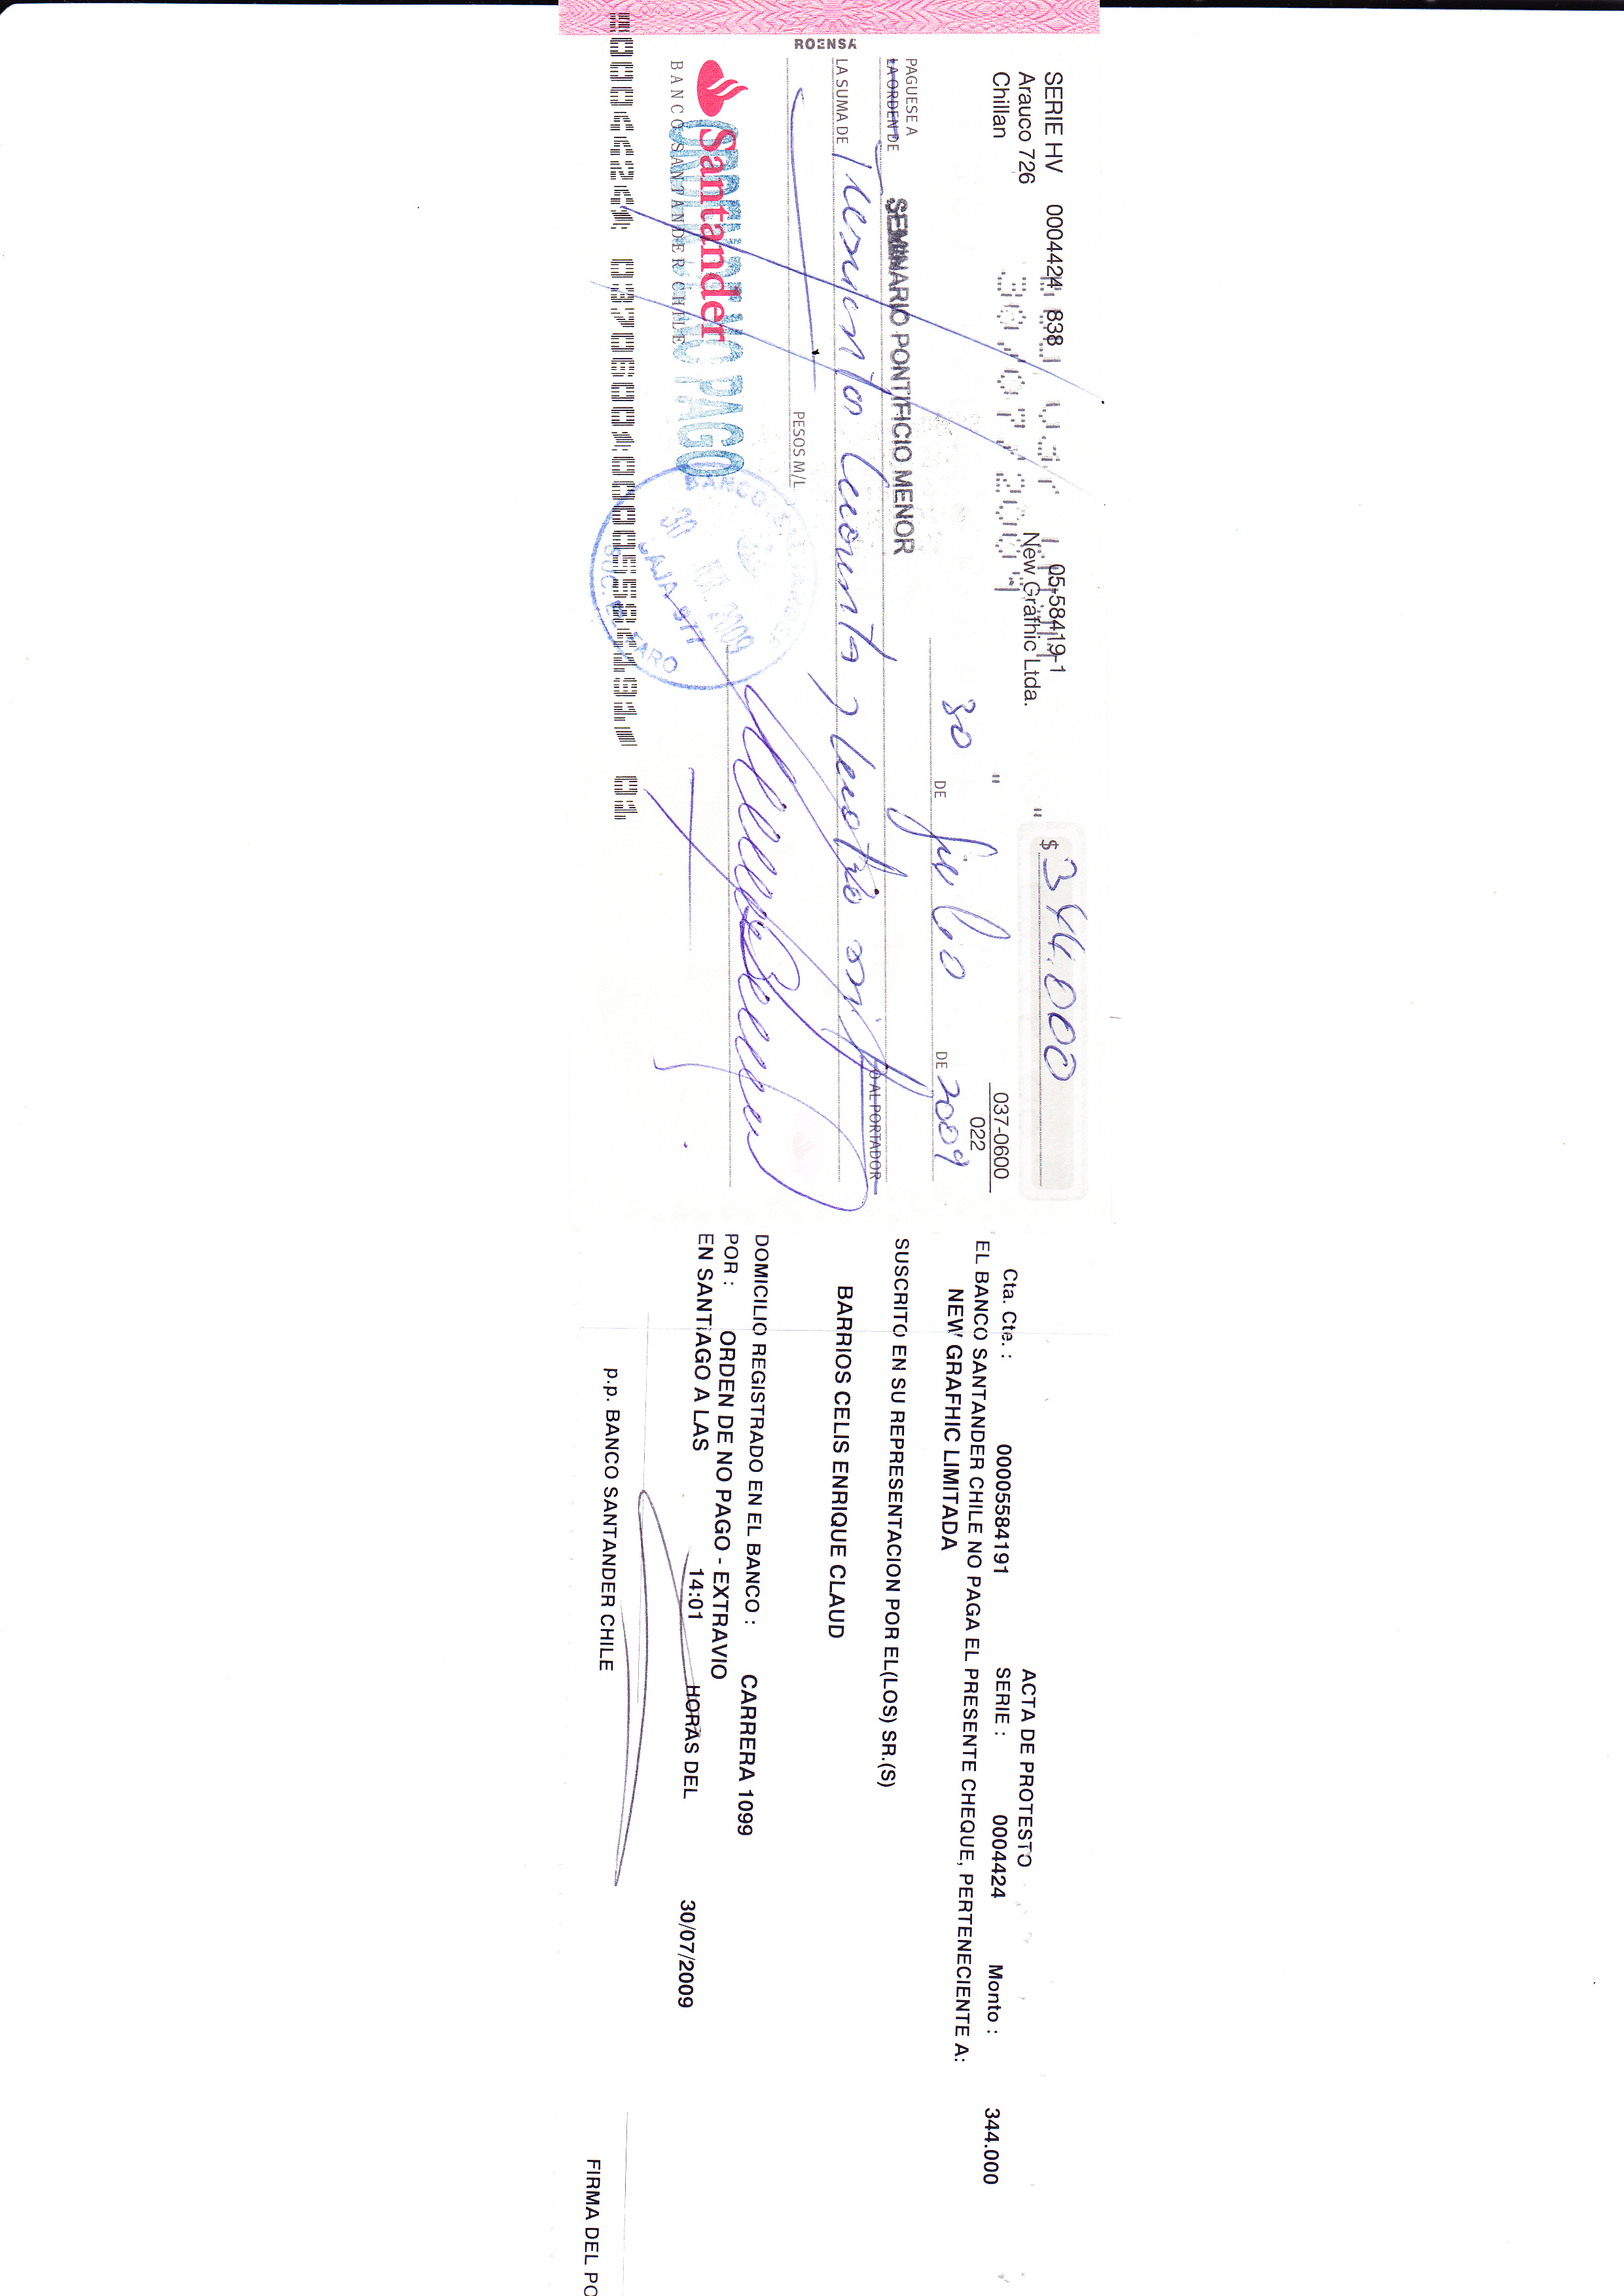 SERIE HV 0004424 838 05-58419-1 $ 344.000
Arauco 726 New Grafhic Ltda.
Chillan
037-0600
022
30 DE Julio DE 2009
PAGUESE A
LA ORDEN DE SEMINARIO PONTIFICIO MENOR O AL PORTADOR
LA SUMA DE Trescientos Cuarenta y Cuatro mil
PESOS M/L
Santander
BANCO SANTANDER CHILE
ORDEN NO PAGO
BANCO SANTANDER
30 JUL 2009
CAJA 977
SUC. EL FARO
ROENSA
ACTA DE PROTESTO
Cta. Cte. : 00005584191 SERIE : 0004424 Monto : 344.000
EL BANCO SANTANDER CHILE NO PAGA EL PRESENTE CHEQUE, PERTENECIENTE A:
NEW GRAFHIC LIMITADA
SUSCRITO EN SU REPRESENTACION POR EL(LOS) SR.(S)
BARRIOS CELIS ENRIQUE CLAUD
DOMICILIO REGISTRADO EN EL BANCO : CARRERA 1099
POR : ORDEN DE NO PAGO - EXTRAVIO
EN SANTIAGO A LAS 14:01 HORAS DEL 30/07/2009
p.p. BANCO SANTANDER CHILE
FIRMA DEL PO